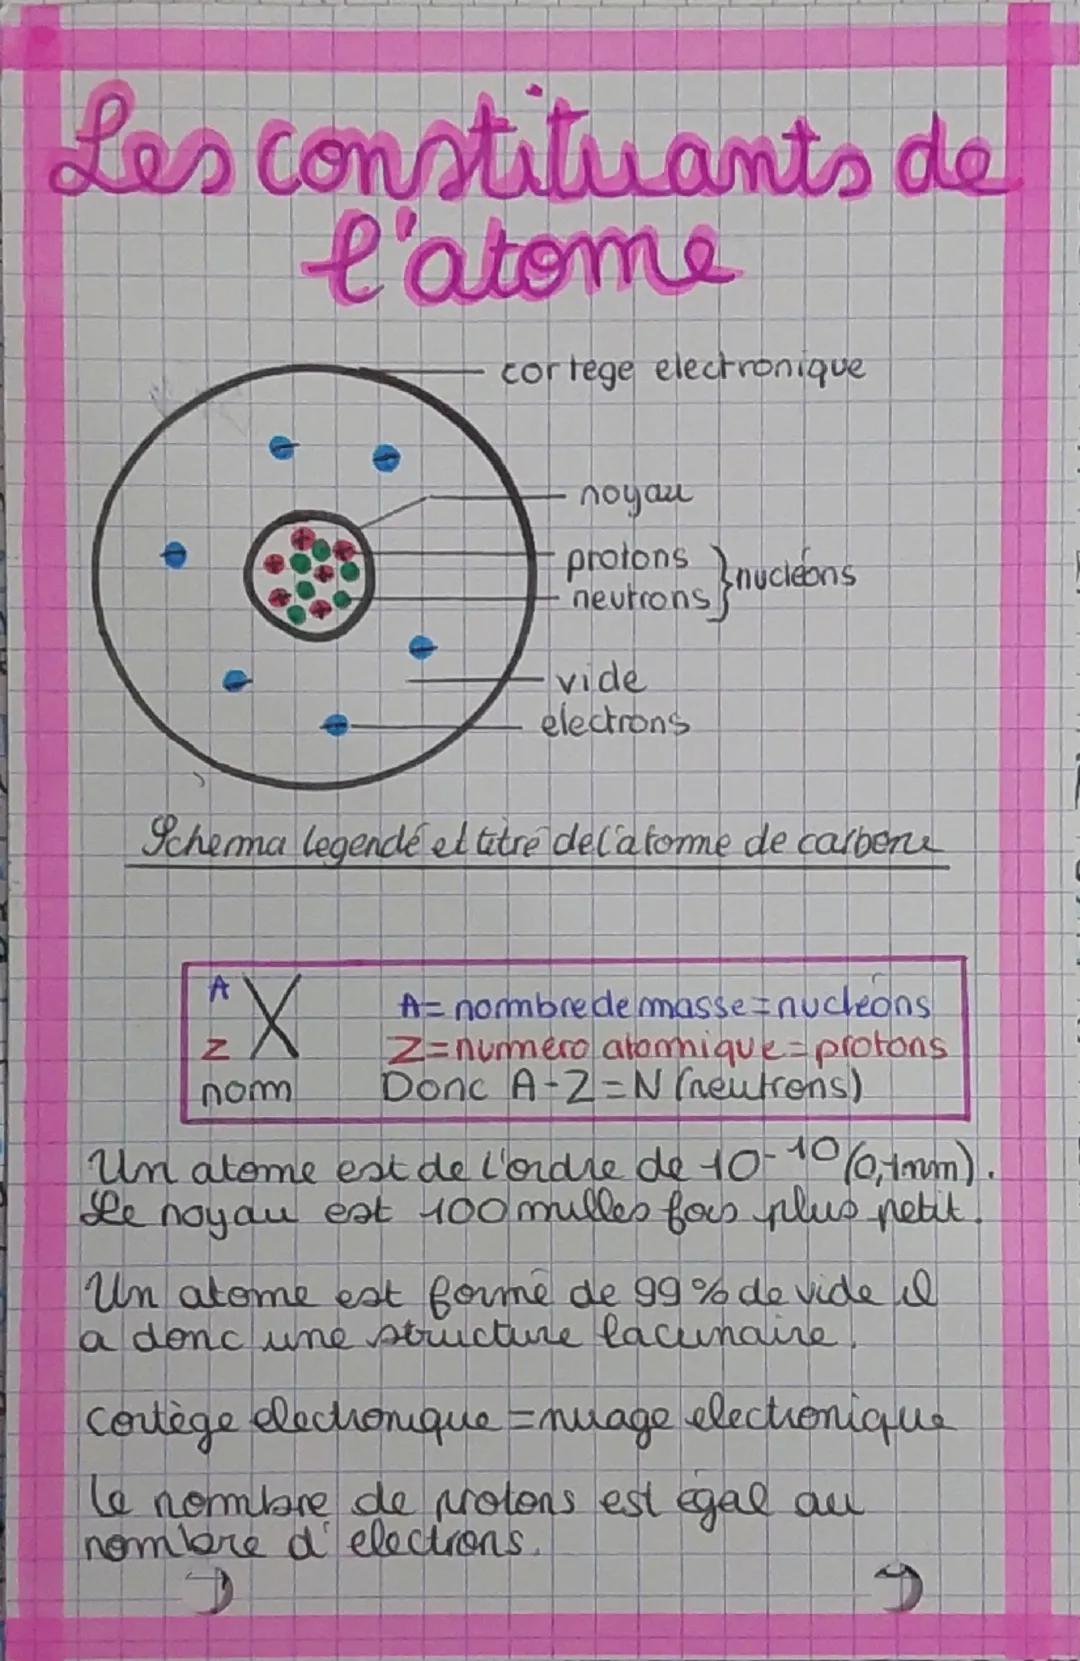 Les constituants de
l'atome
cortege electronique
noyau
protons
neutrons
nucléons
vide
electrons
Schema legendé et titré de l'atome de carbone
A
X
Z
nom
A= nombre de masse = nucléons
Z= numéro atomique = protons
Donc A-Z=N (neutrons)
Un atome est de l'ordre de 10-10 (0,1nm).
Le noyau est 100 milles fois plus petit.
Un atome est formé de 99% de vide il
a donc une structure lacunaire.
cortège electronique = nuage electronique
le nombre de protons est égal au
nombre d'electrons.